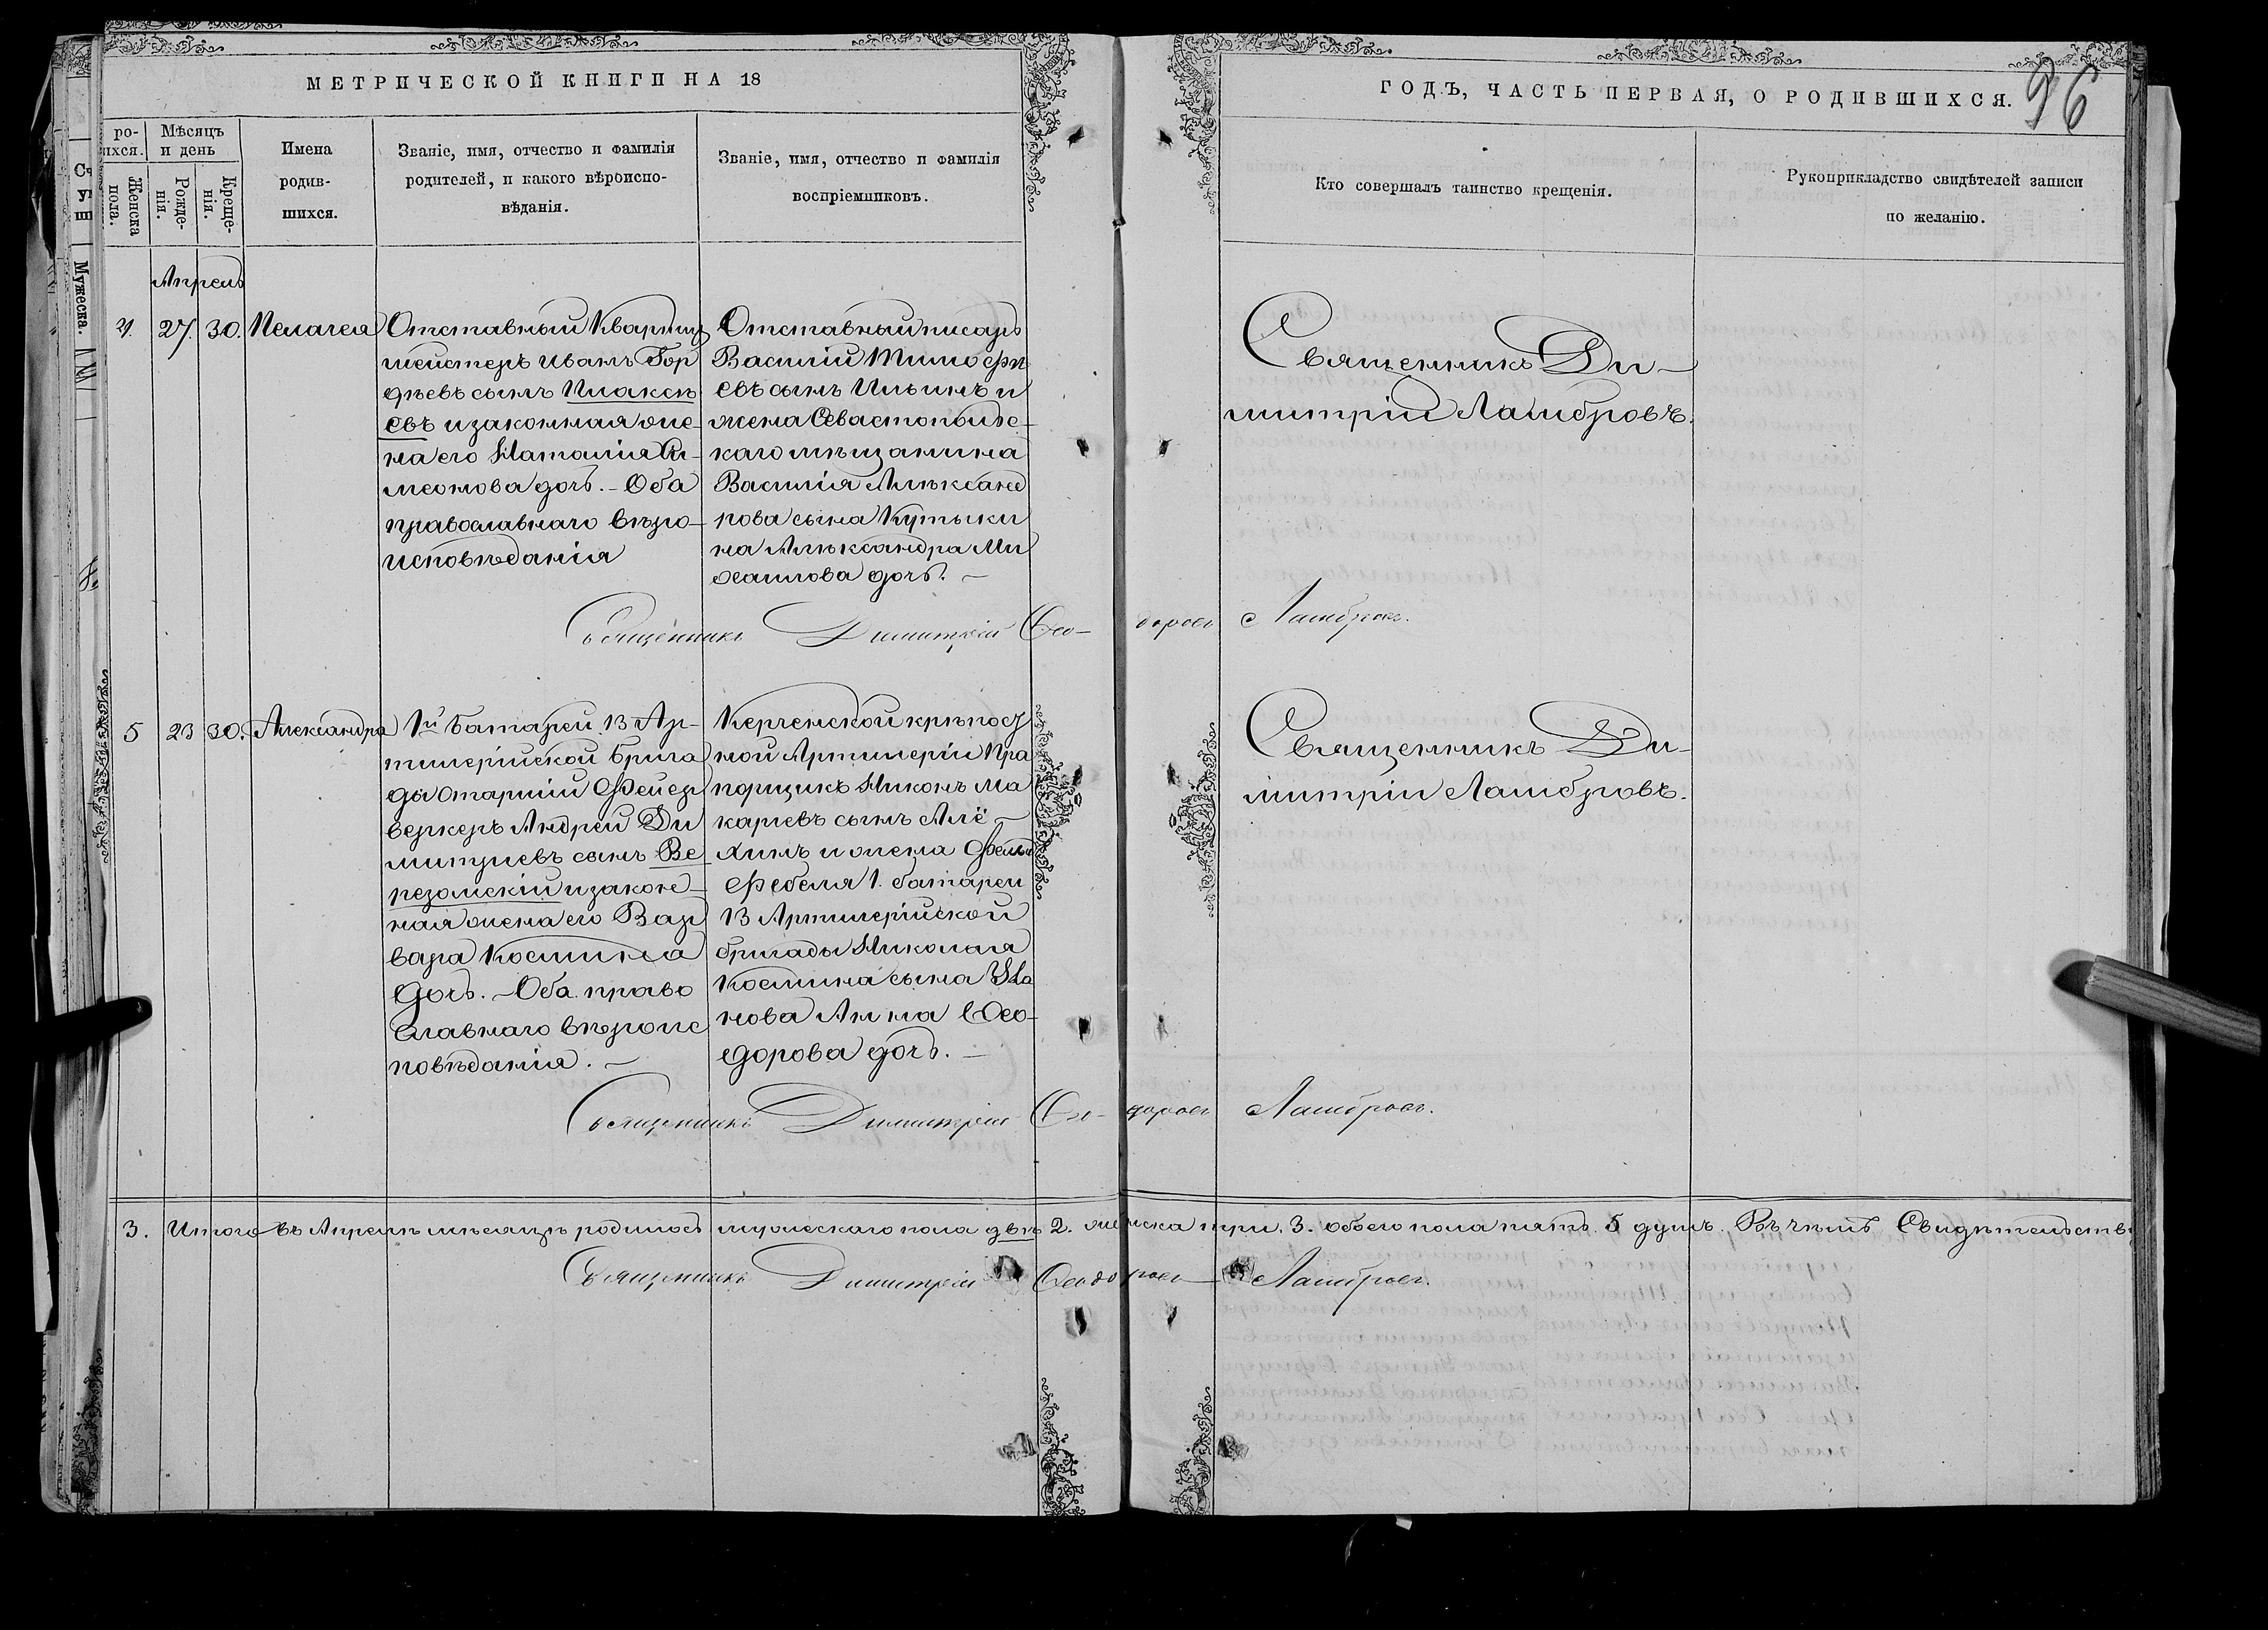 МЕТРИЧЕСКОЙ КНИГИ НА 18
ГОДЪ, ЧАСТЬ ПЕРВАЯ, О РОДИВШИХСЯ.
36
ро-
ихся.
Женска
пола.
Мѣсяцъ
и день
Рожде-
нія.
Креще-
нія.
Имена
родив-
шихся.
Званіе, имя, отчество и фамилія
родителей, и какого вѣроиспо-
вѣданія.
Званіе, имя, отчество и фамилія
воспріемниковъ.
Кто совершалъ таинство крещенія.
Рукоприкладство свидѣтелей записи
по желанію.
Мужеска.
Апрель
4. 27. 30. Пелагея
Отставный Квартир
мейстеръ Иванъ Гор
дѣевъ сынъ Плаксѣ
евъ и законная же-
на его Наталія Си-
меонова дочь. – Оба
православнаго вѣро-
исповѣданія
Отставный писарь
Василій Тимофѣ
евъ сынъ Ильинъ и
жена Севастопольс-
каго мѣщанина
Василія Алѣксанд
рова сына Кутыки
на Алѣксандра Ми
хаилова дочь. –
Священникъ Ди-
митрій Лашбровъ.
Священникъ Димитрій Ѳео-доровъ Лашбровъ.
5 23 30. Александра
1й батареи 13 Ар-
тилерійской брига
ды Старшій Фейер
веркеръ Андрей Ди
митриевъ сынъ Ве
незомскій и закон-
ная жена его Вар
вара Космина
дочь. – Оба право
славнаго вѣроис
повѣданія. –
Керченской крѣпост
ной Артилеріи Пра
порщикъ Никонъ Ма
кариевъ сынъ Алё-
хинъ и жена Фельд
фебеля 1. батареи
13 Артилерійской
бригады Николая
Космина сына Ула
нова Анна Ѳео-
дорова дочь. –
Священникъ Ди-
митрій Лашбровъ.
Священникъ Димитрій Ѳео-доровъ Лашбровъ.
3. Итого въ Апрелѣ мѣсяцѣ родилось мужескаго пола двѣ 2. женска три. 3. обоего пола пять. 5 душъ. Въ чемъ Свидѣтельству
Священникъ Димитрій Ѳеодоровъ Лашбровъ.